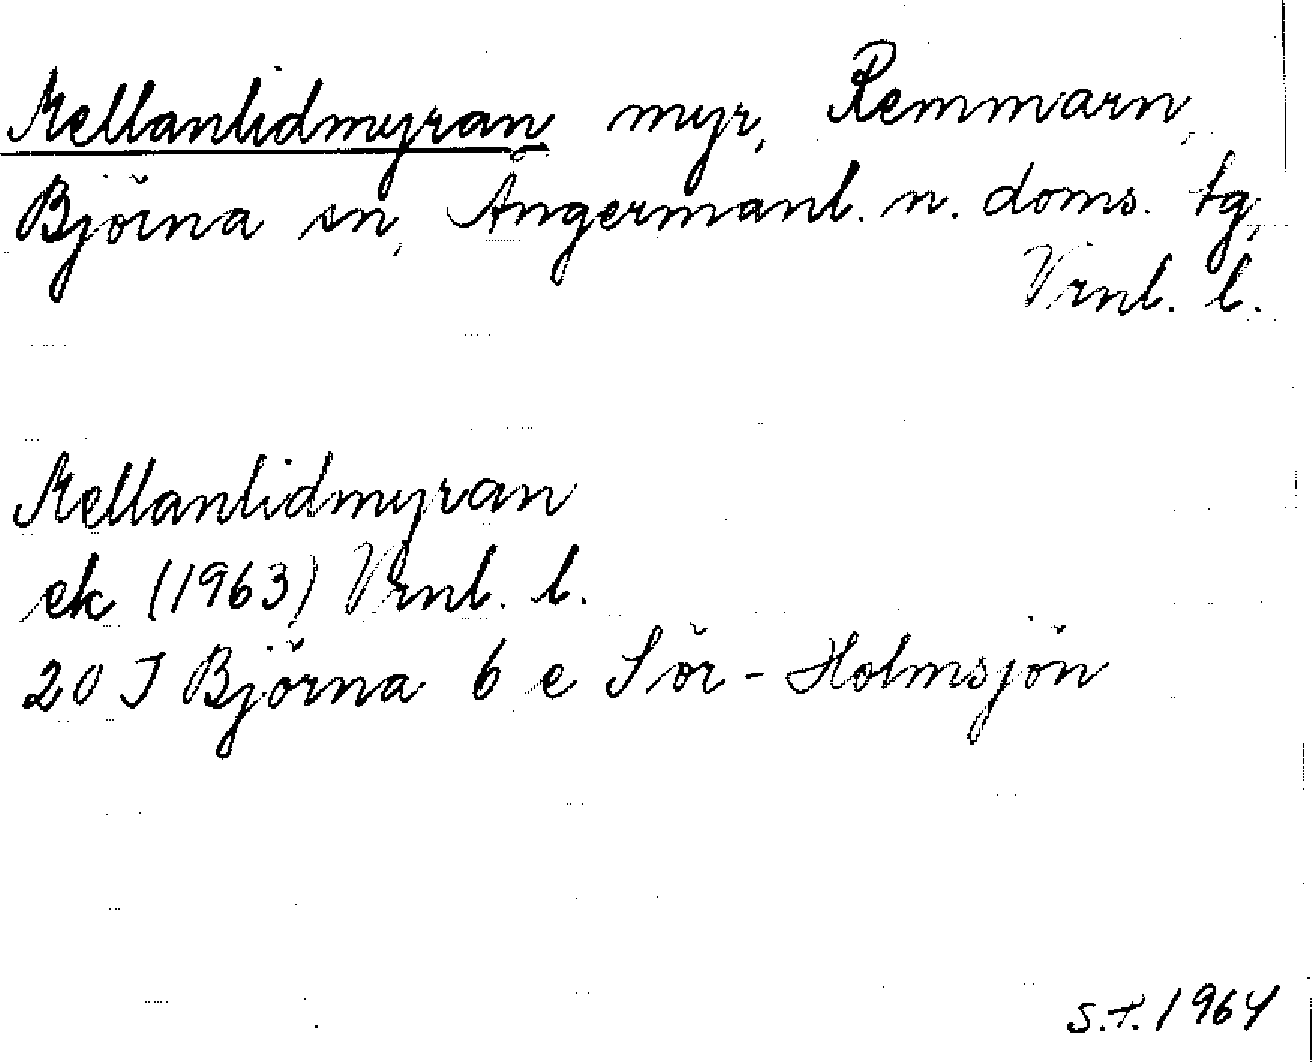 Mellanlidmyran myr, Remmarn,
Björna sn, Ångermanl. n. doms. tg,
Vrnl. l.
Mellanlidmyran
ek (1963) Vrnl. l.
20 J Björna 6 e Sör-Holmsjön
S.T. 1964